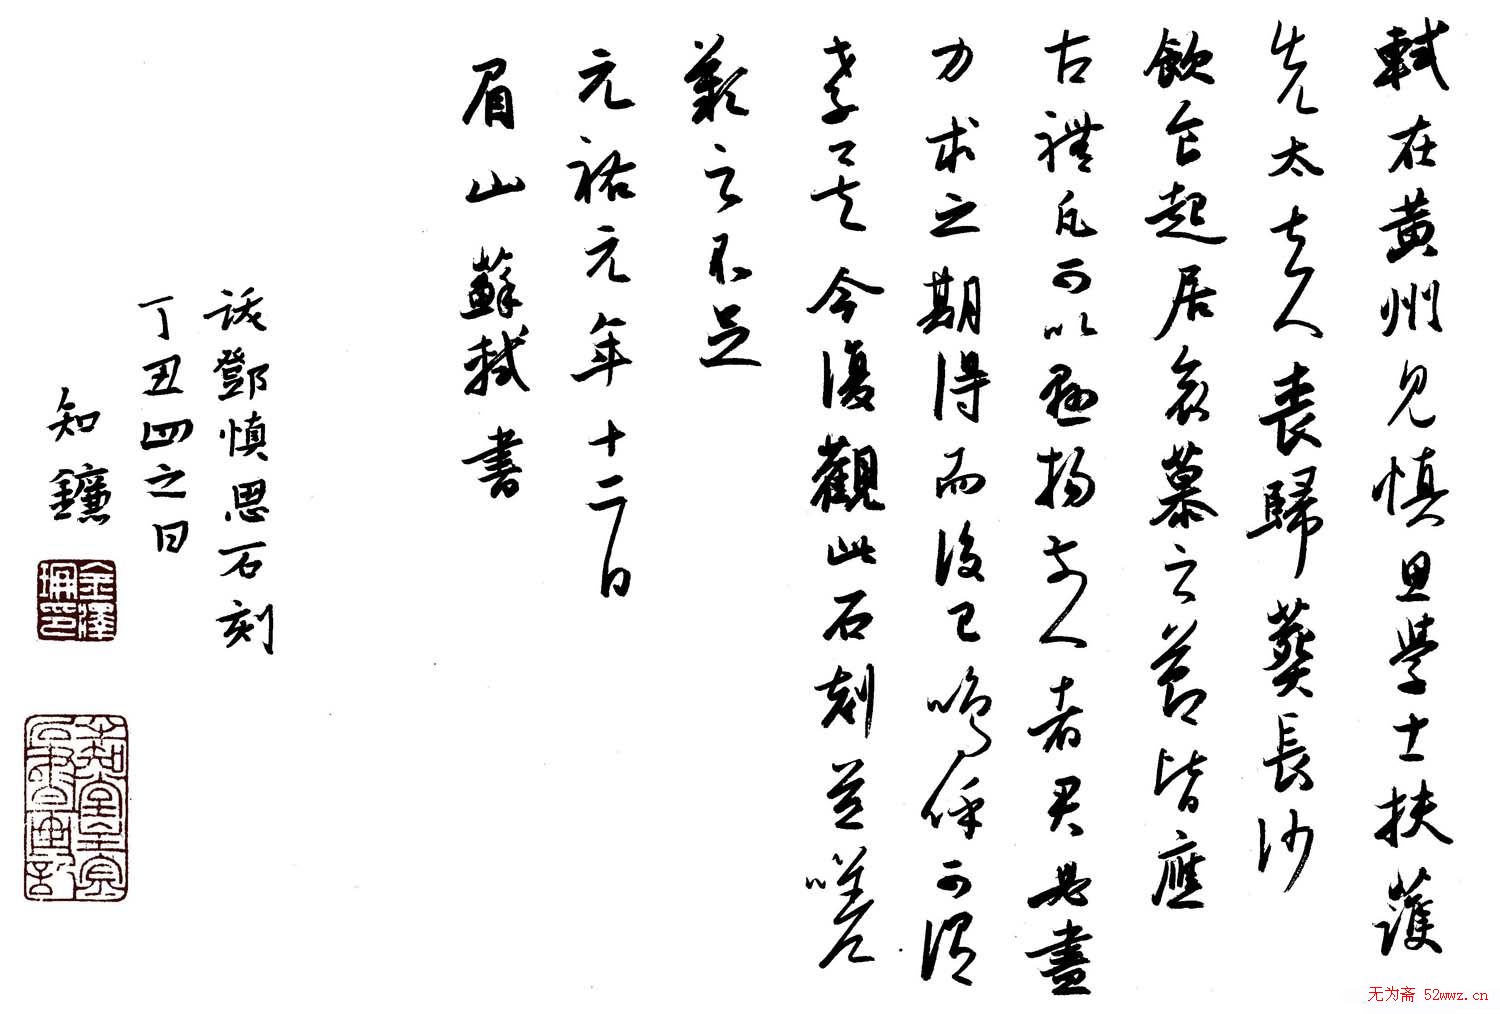 軾在黃州見慎思學士扶護
先太夫人喪歸葬長沙
飲食起居哀慕之節皆應
古禮凡可以顯揚夫人者君必盡
力求之期得而後已嗚呼可謂
孝矣今復觀此石刻並嗟
歎之不足
元祐元年十二日
眉山蘇軾書
跋鄧慎思石刻
丁丑四之日
知鐮
无为斋 52wwz.cn